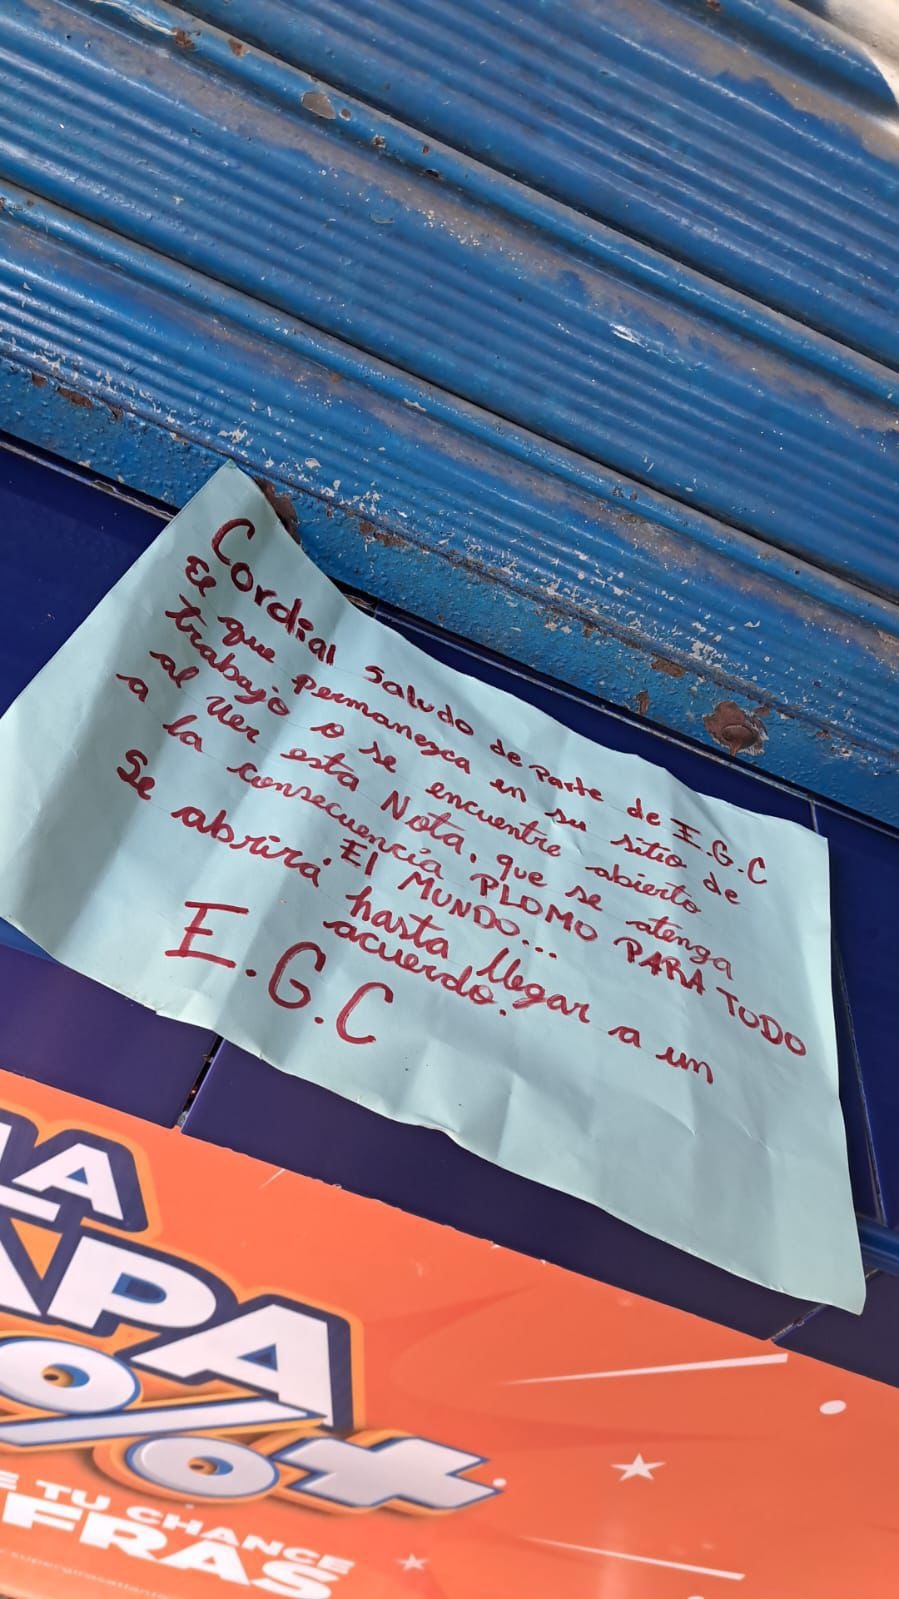 Cordial saludo de parte de E.G.C
El que permanezca en su sitio de
trabajo o se encuentre abierto
al ver esta Nota, que se atenga
a la consecuencia PLOMO PARA TODO
El MUNDO...
Se abrirá hasta llegar a un
acuerdo.
E.G.C
LA
APA
%+
E TU CHANCE
FRAS